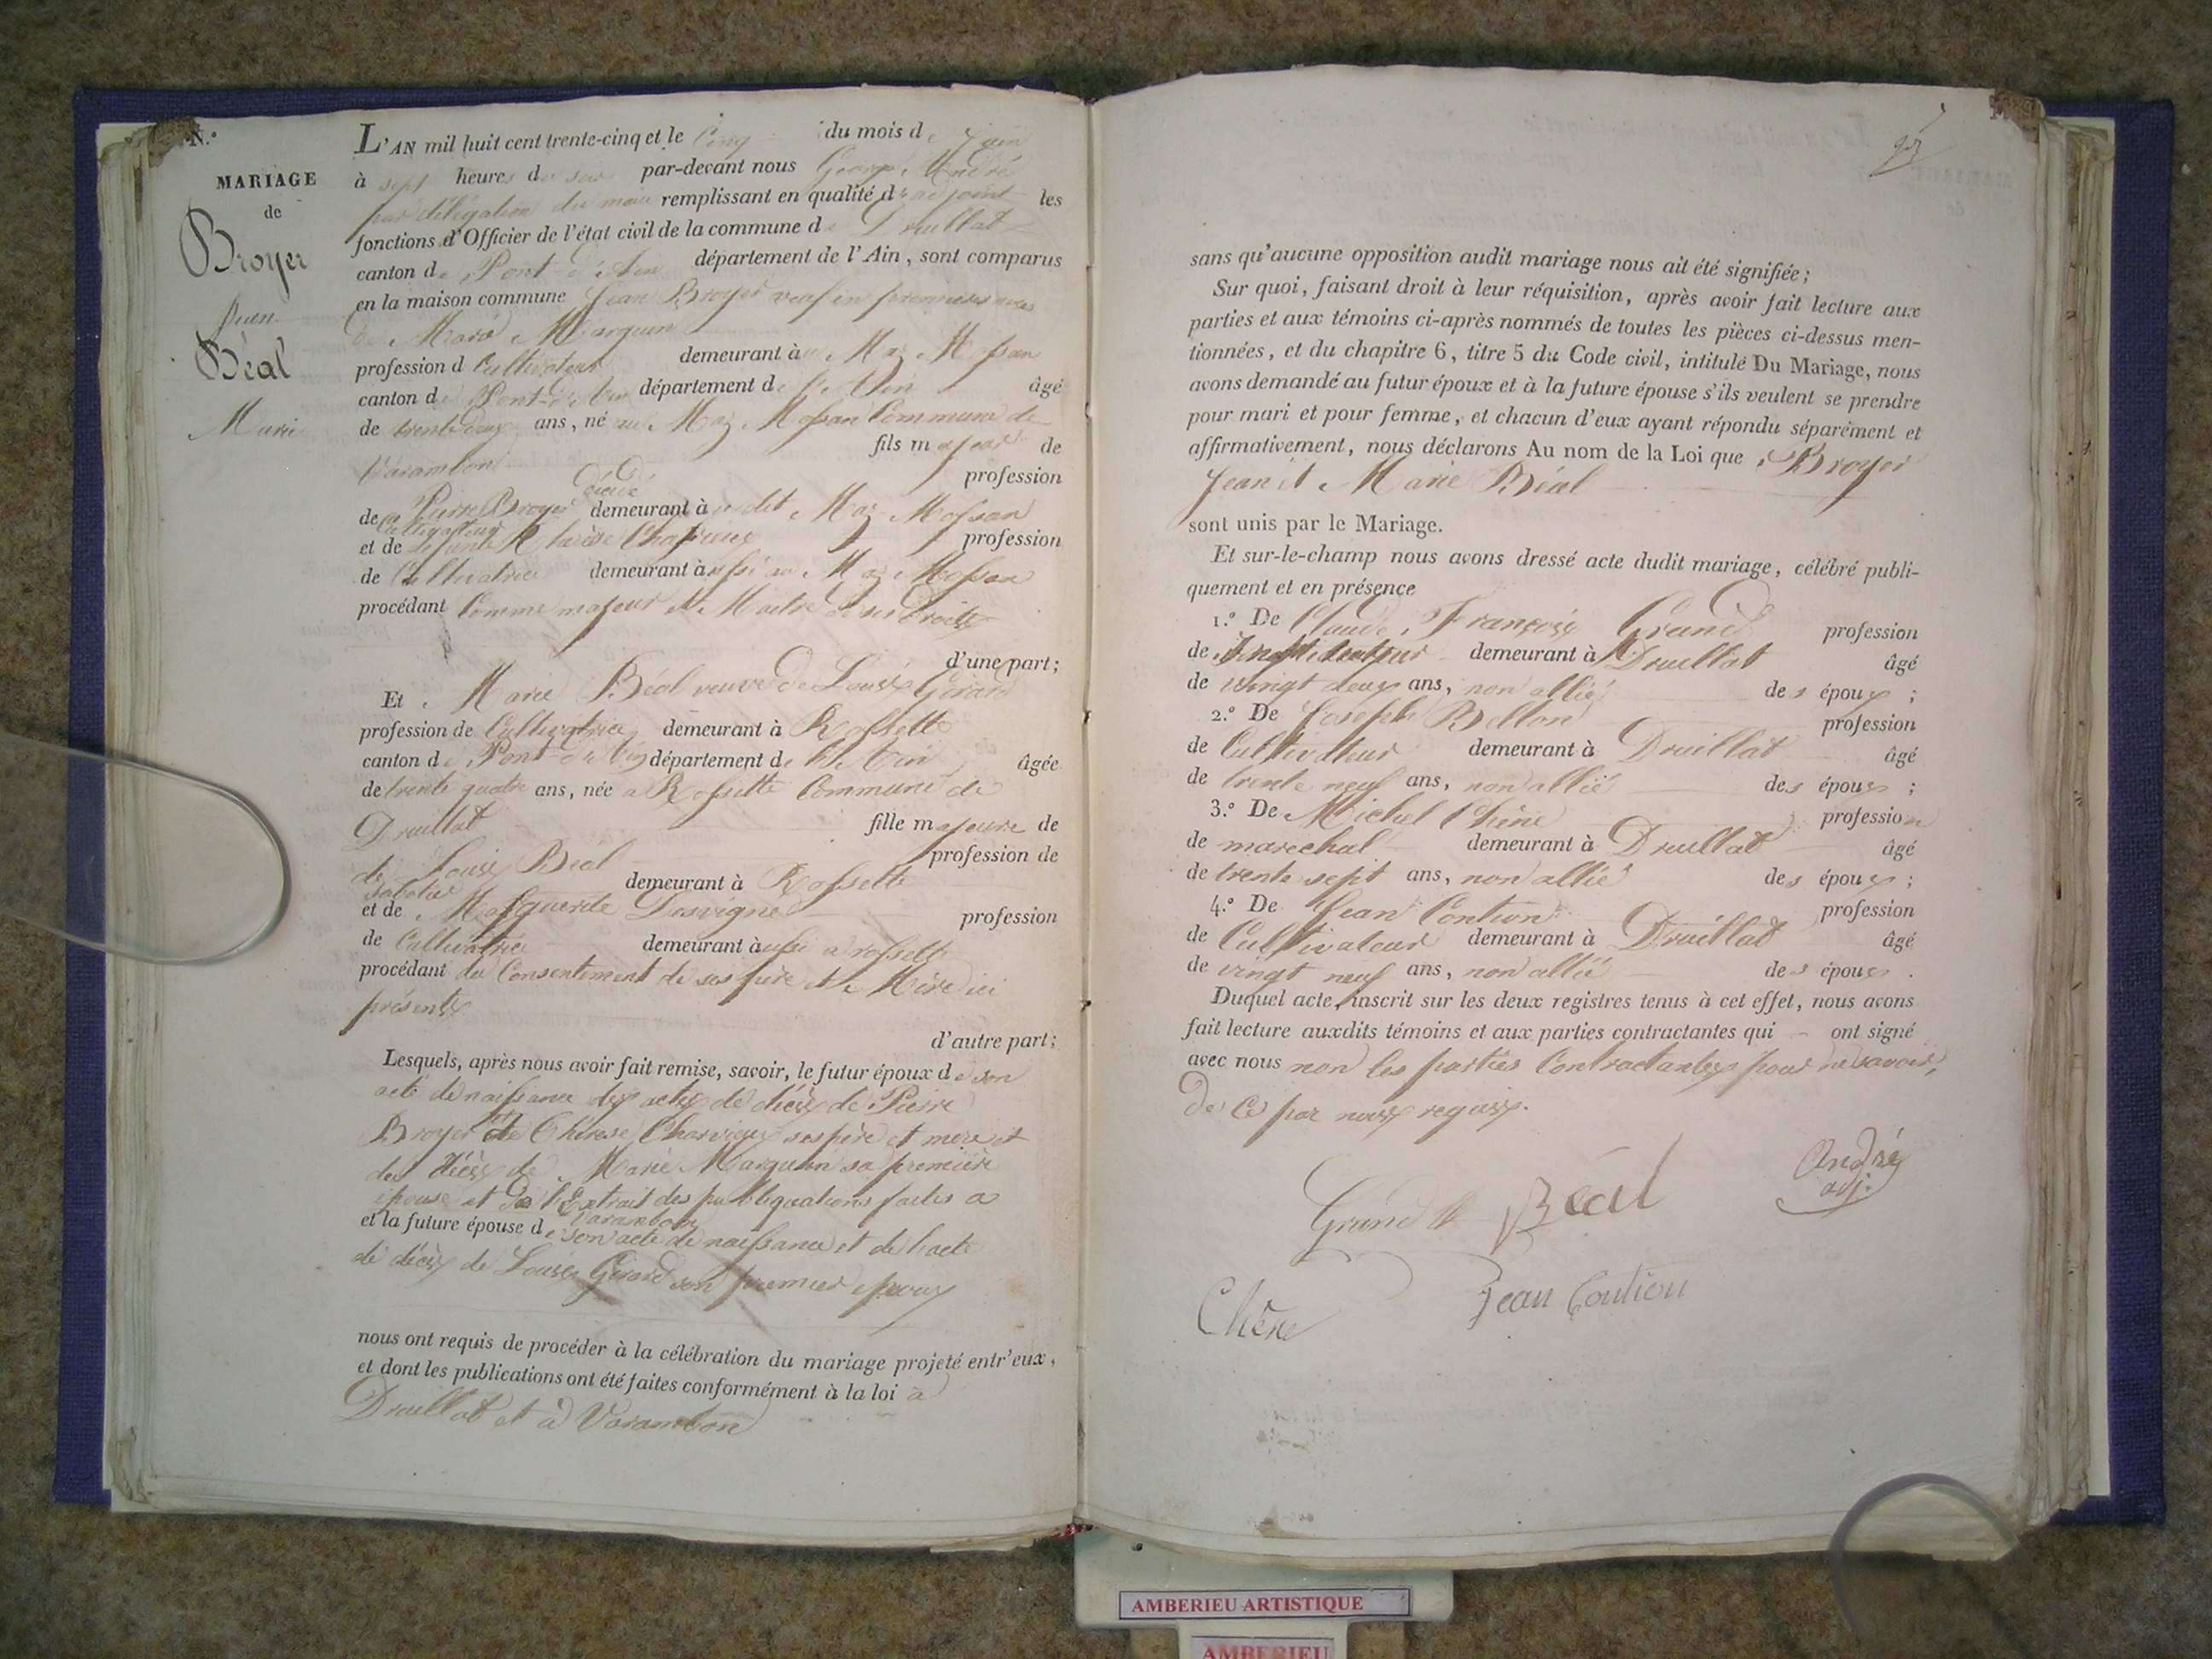 N.°
MARIAGE
de
Broyer
Jean
Béal
Marie
L'AN mil huit cent trente-cinq et le Cinq du mois de Juin
à sept heures du soir par-devant nous George André
par délégation du maire remplissant en qualité d'adjoint les
fonctions d'Officier de l'état civil de la commune de Druillat
canton de Pont-d'Ain département de l'Ain, sont comparus
en la maison commune Jean Broyer veuf en premières noces
de Marie Marquin
profession de Cultivateur demeurant au Maz Mossan
canton de Pont-d'Ain département de l'Ain âgé
de trente deux ans, né au Maz Mossan Commune de
Varambon fils majeur de
profession
décédé
de Pierre Broyer demeurant à dit Maz Mossan
Cultivateur
et de defunte Thérèse Charvieux profession
de Cultivatrice demeurant aussi au Maz Mossan
procédant Comme majeur et Maitre de ses Droits
d'une part;
Et Marie Béal veuve de Louis Girard
profession de Cultivatrice demeurant à Rossette
canton de Pont-d'Ain département de l'Ain âgée
de trente quatre ans, née à Rossette Commune de
Druillat fille majeure de
de Louis Béal profession de
sabotier demeurant à Rossette
et de Marguerite Desvigne profession
de Cultivatrice demeurant aussi a rossette
procédant du Consentement de ses père et Mère ici
présents
d'autre part;
Lesquels, après nous avoir fait remise, savoir, le futur époux de son
acte de naissance des actes de décès de Pierre
Broyer et de Thérèse Charvieux ses père et mere et
du décès de Marie Marquin sa première
épouse et de l'Extrait des publiquations faites a
Varambon
et la future épouse de son acte de naissance et de l'acte
de décès de Louis Girard son premier epoux
nous ont requis de procéder à la célébration du mariage projeté entr'eux,
et dont les publications ont été faites conformément à la loi à
Druillat et à Varambon
sans qu'aucune opposition audit mariage nous ait été signifiée;
Sur quoi, faisant droit à leur réquisition, après avoir fait lecture aux
parties et aux témoins ci-après nommés de toutes les pièces ci-dessus men-
tionnées, et du chapitre 6, titre 5 du Code civil, intitulé Du Mariage, nous
avons demandé au futur époux et à la future épouse s'ils veulent se prendre
pour mari et pour femme, et chacun d'eux ayant répondu séparément et
affirmativement, nous déclarons Au nom de la Loi que Broyer
Jean et Marie Béal
sont unis par le Mariage.
Et sur-le-champ nous avons dressé acte dudit mariage, célébré publi-
quement et en présence
1.° De Claude François Grand profession
de Instituteur demeurant à Druillat âgé
de vingt deux ans, non allié des époux;
2.° De Joseph Bellon profession
de Cultivateur demeurant à Druillat âgé
de trente neuf ans, non allié des époux;
3.° De Michel Chêne profession
de marechal demeurant à Druillat âgé
de trente sept ans, non allié des époux;
4.° De Jean Contion profession
de Cultivateur demeurant à Druillat âgé
de vingt neuf ans, non allié des époux.
Duquel acte, inscrit sur les deux registres tenus à cet effet, nous avons
fait lecture auxdits témoins et aux parties contractantes qui ont signé
avec nous non les parties Contractantes pour ne savoir,
De ce par nous requis.
André
adj.
Grand Béal
Chêne Jean Contion
AMBERIEU ARTISTIQUE
AMBERIEU